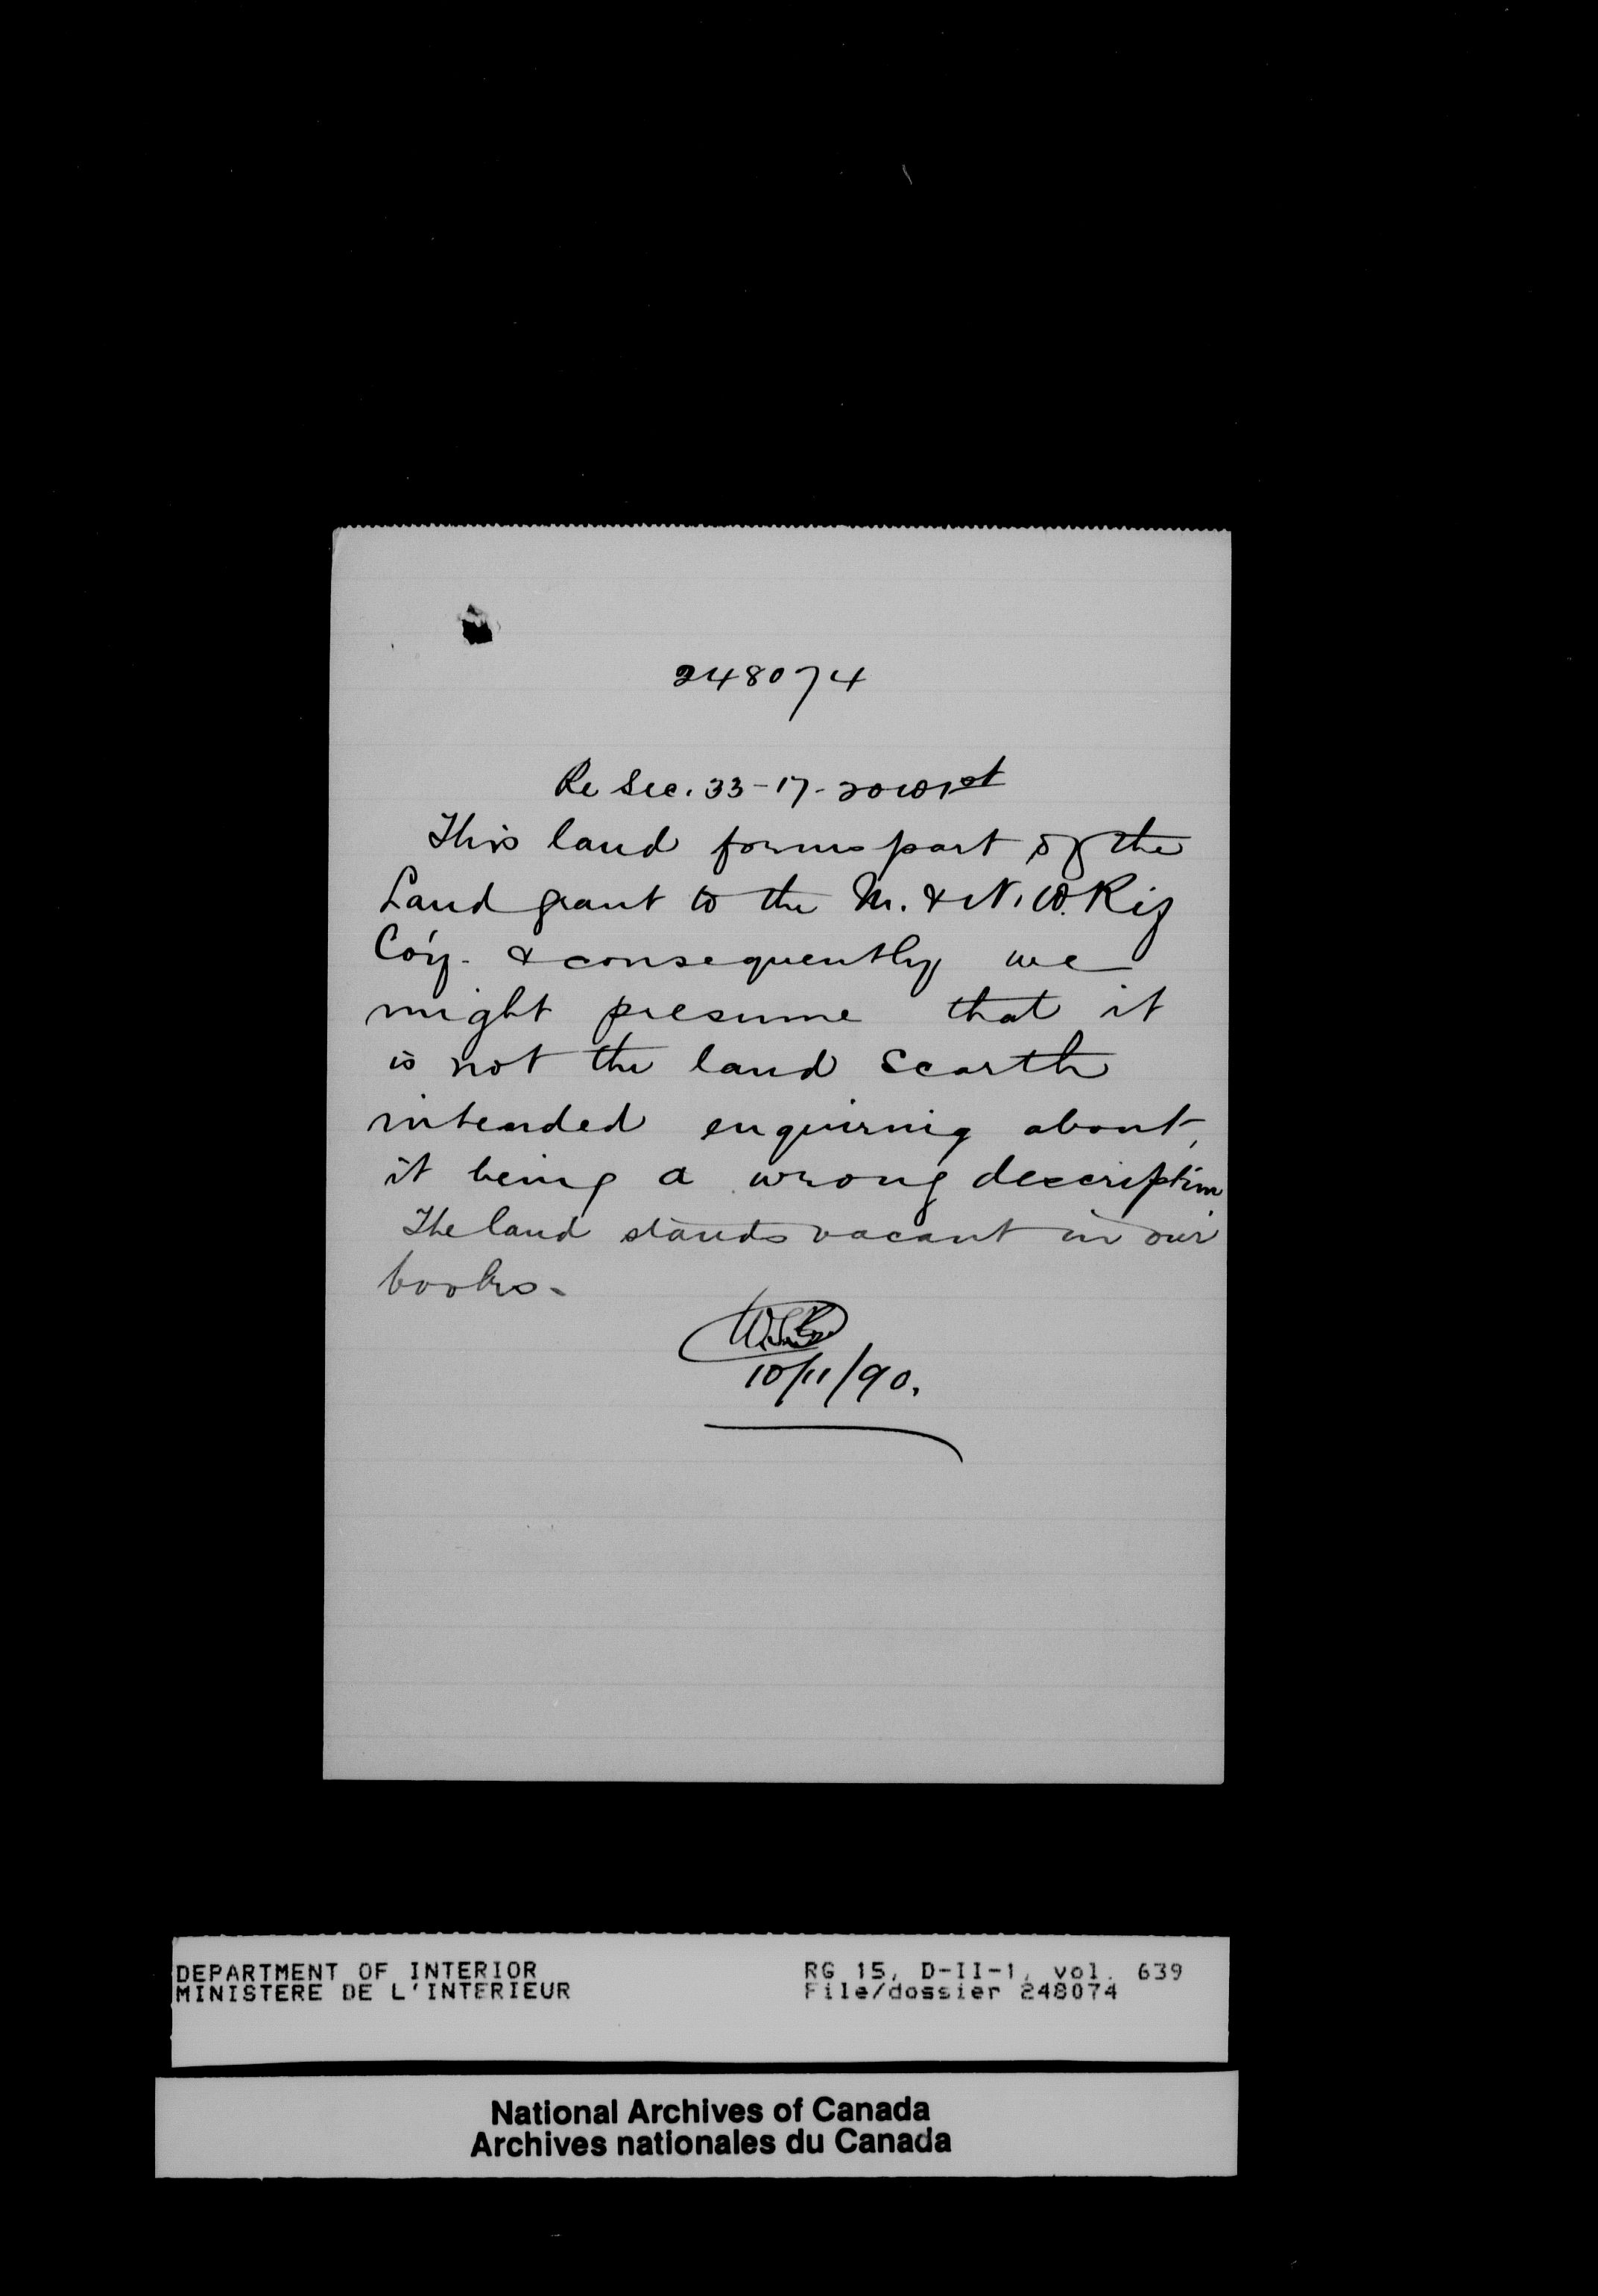 248074
Re Sec. 33-17-20W1st
This land forms part of the
Land grant to the M. & N. W. Rly
Co'y. & consequently we
might presume that it
is not the land Scarth
intended enquiring about,
it being a wrong description
The land stands vacant in our
books.
10/11/90.
DEPARTMENT OF INTERIOR
MINISTERE DE L'INTERIEUR
RG 15, D-II-1, vol. 639
File/dossier 248074
National Archives of Canada
Archives nationales du Canada